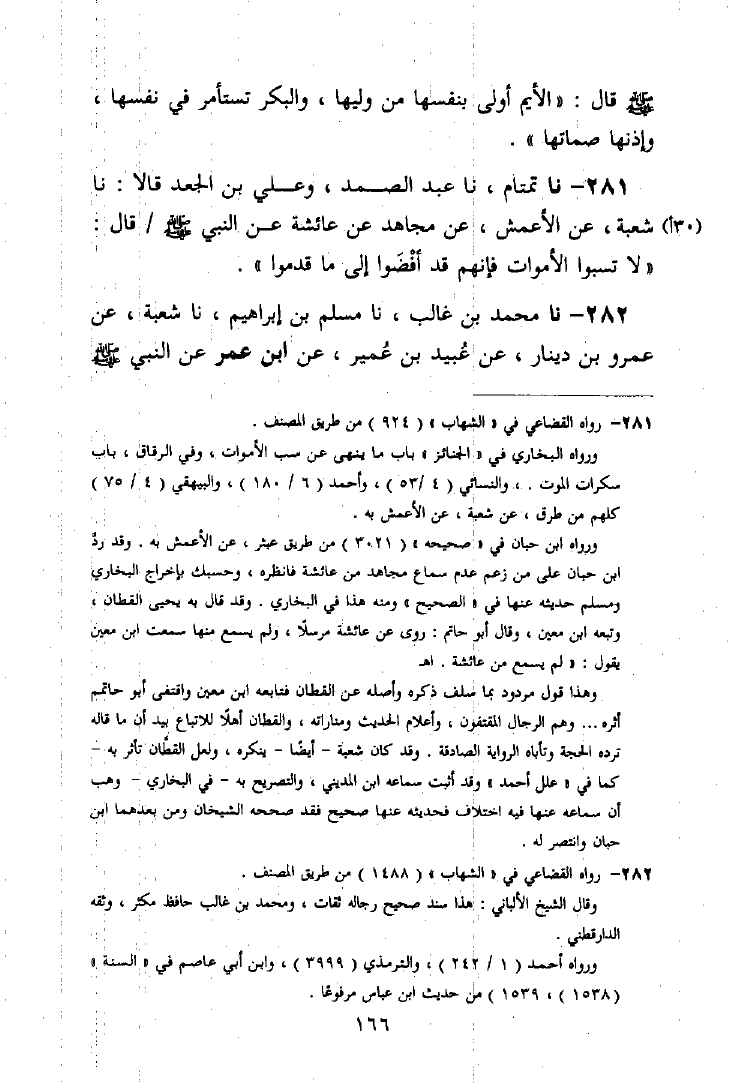 ﷺ قال : « الأيم أولى بنفسها من وليها ، والبكر تستأمر في نفسها ،
وإذنها صماتها » .
٢٨١- نا تمتام ، نا عبد الصمد ، وعلي بن الجعد قالا : نا
(٣٠أ) شعبة ، عن الأعمش ، عن مجاهد عن عائشة عن النبي ﷺ / قال :
« لا تسبوا الأموات فإنهم قد أفْضَوا إلى ما قدموا » .
٢٨٢- نا محمد بن غالب ، نا مسلم بن إبراهيم ، نا شعبة ، عن
عمرو بن دينار ، عن عُبيد بن عُمير ، عن ابن عمر عن النبي ﷺ
٢٨١- رواه القضاعي في « الشهاب » ( ٩٢٤ ) من طريق المصنف .
ورواه البخاري في « الجنائز » باب ما ينهى عن سب الأموات ، وفي الرقاق ، باب
سكرات الموت . ، والنسائي ( ٤ /٥٣ ) ، وأحمد ( ٦ / ١٨٠ ) ، والبيهقي ( ٤ / ٧٥ )
كلهم من طرق ، عن شعبة ، عن الأعمش به .
ورواه ابن حبان في « صحيحه » ( ٣٠٢١ ) من طريق عبثر ، عن الأعمش به . وقد ردَّ
ابن حبان على من زعم عدم سماع مجاهد من عائشة فانظره ، وحسبك بإخراج البخاري
ومسلم حديثه عنها في « الصحيح » ومنه هذا في البخاري . وقد قال به يحيى القطان ،
وتبعه ابن معين ، وقال أبو حاتم : روى عن عائشة مرسلًا ، ولم يسمع منها سمعت ابن معين
يقول : « لم يسمع من عائشة . اهـ
وهذا قول مردود بما سلف ذكره وأصله عن القطان فتابعه ابن معين واقتفى أبو حاتم
أثره ... وهم الرجال المقتفون ، وأعلام الحديث ومناراته ، والقطان أهلًا للاتباع بيد أن ما قاله
ترده الحجة وتأباه الرواية الصادقة . وقد كان شعبة - أيضًا - ينكره ، ولعل القطَّان تأثر به -
كما في « علل أحمد » وقد أثبت سماعه ابن المديني ، والتصريح به - في البخاري - وهب
أن سماعه عنها فيه اختلاف فحديثه عنها صحيح فقد صححه الشيخان ومن بعدهما ابن
حبان وانتصر له .
٢٨٢- رواه القضاعي في « الشهاب » ( ١٤٨٨ ) من طريق المصنف .
وقال الشيخ الألباني : هذا سند صحيح رجاله ثقات ، ومحمد بن غالب حافظ مكثر ، وثقه
الدارقطني .
ورواه أحمد ( ١ / ٢٤٢ ) ، والترمذي ( ٣٩٩٩ ) ، وابن أبي عاصم في « السنة »
( ١٥٣٨ ) ، ١٥٣٩ ) من حديث ابن عباس مرفوعًا .
١٦٦